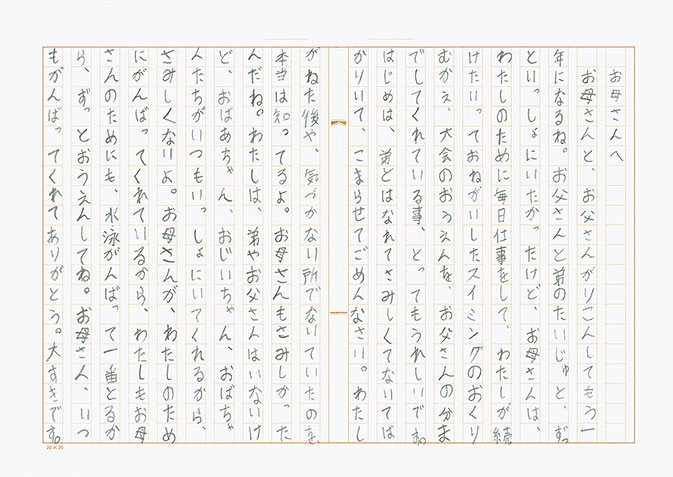 お母さんへ
お母さんと、お父さんがりこんしてもう一
年になるね。お父さんと弟のたいじゅと、ずっ
といっしょにいたかったけど、お母さんは、
わたしのために毎日仕事をして、わたしが続
けたいっておねがいしたスイミングのおくり
むかえ、大会のおうえんを、お父さんの分ま
でしてくれている事、とってもうれしいです。
はじめは、弟とはなれてさみしくてないてば
かりいて、こまらせてごめんなさい。わたし
がねた後や、気づかない所でないていたのを、
本当は知ってるよ。お母さんもさみしかった
んだね。わたしは、弟やお父さんはいないけ
ど、おばあちゃん、おじいちゃん、おばちゃ
人たちがいつもいっしょにいてくれるから、
さみしくないよ。お母さんが、わたしのため
にがんばってくれているから、わたしもお母
さんのためにも、水泳がんばって一番とるか
ら、ずっとおうえんしてね。お母さん、いつ
もがんばってくれてありがとう。大すきです。
20×20